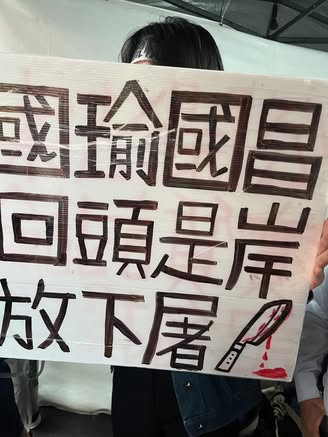 國瑜國昌
回頭是岸
放下屠